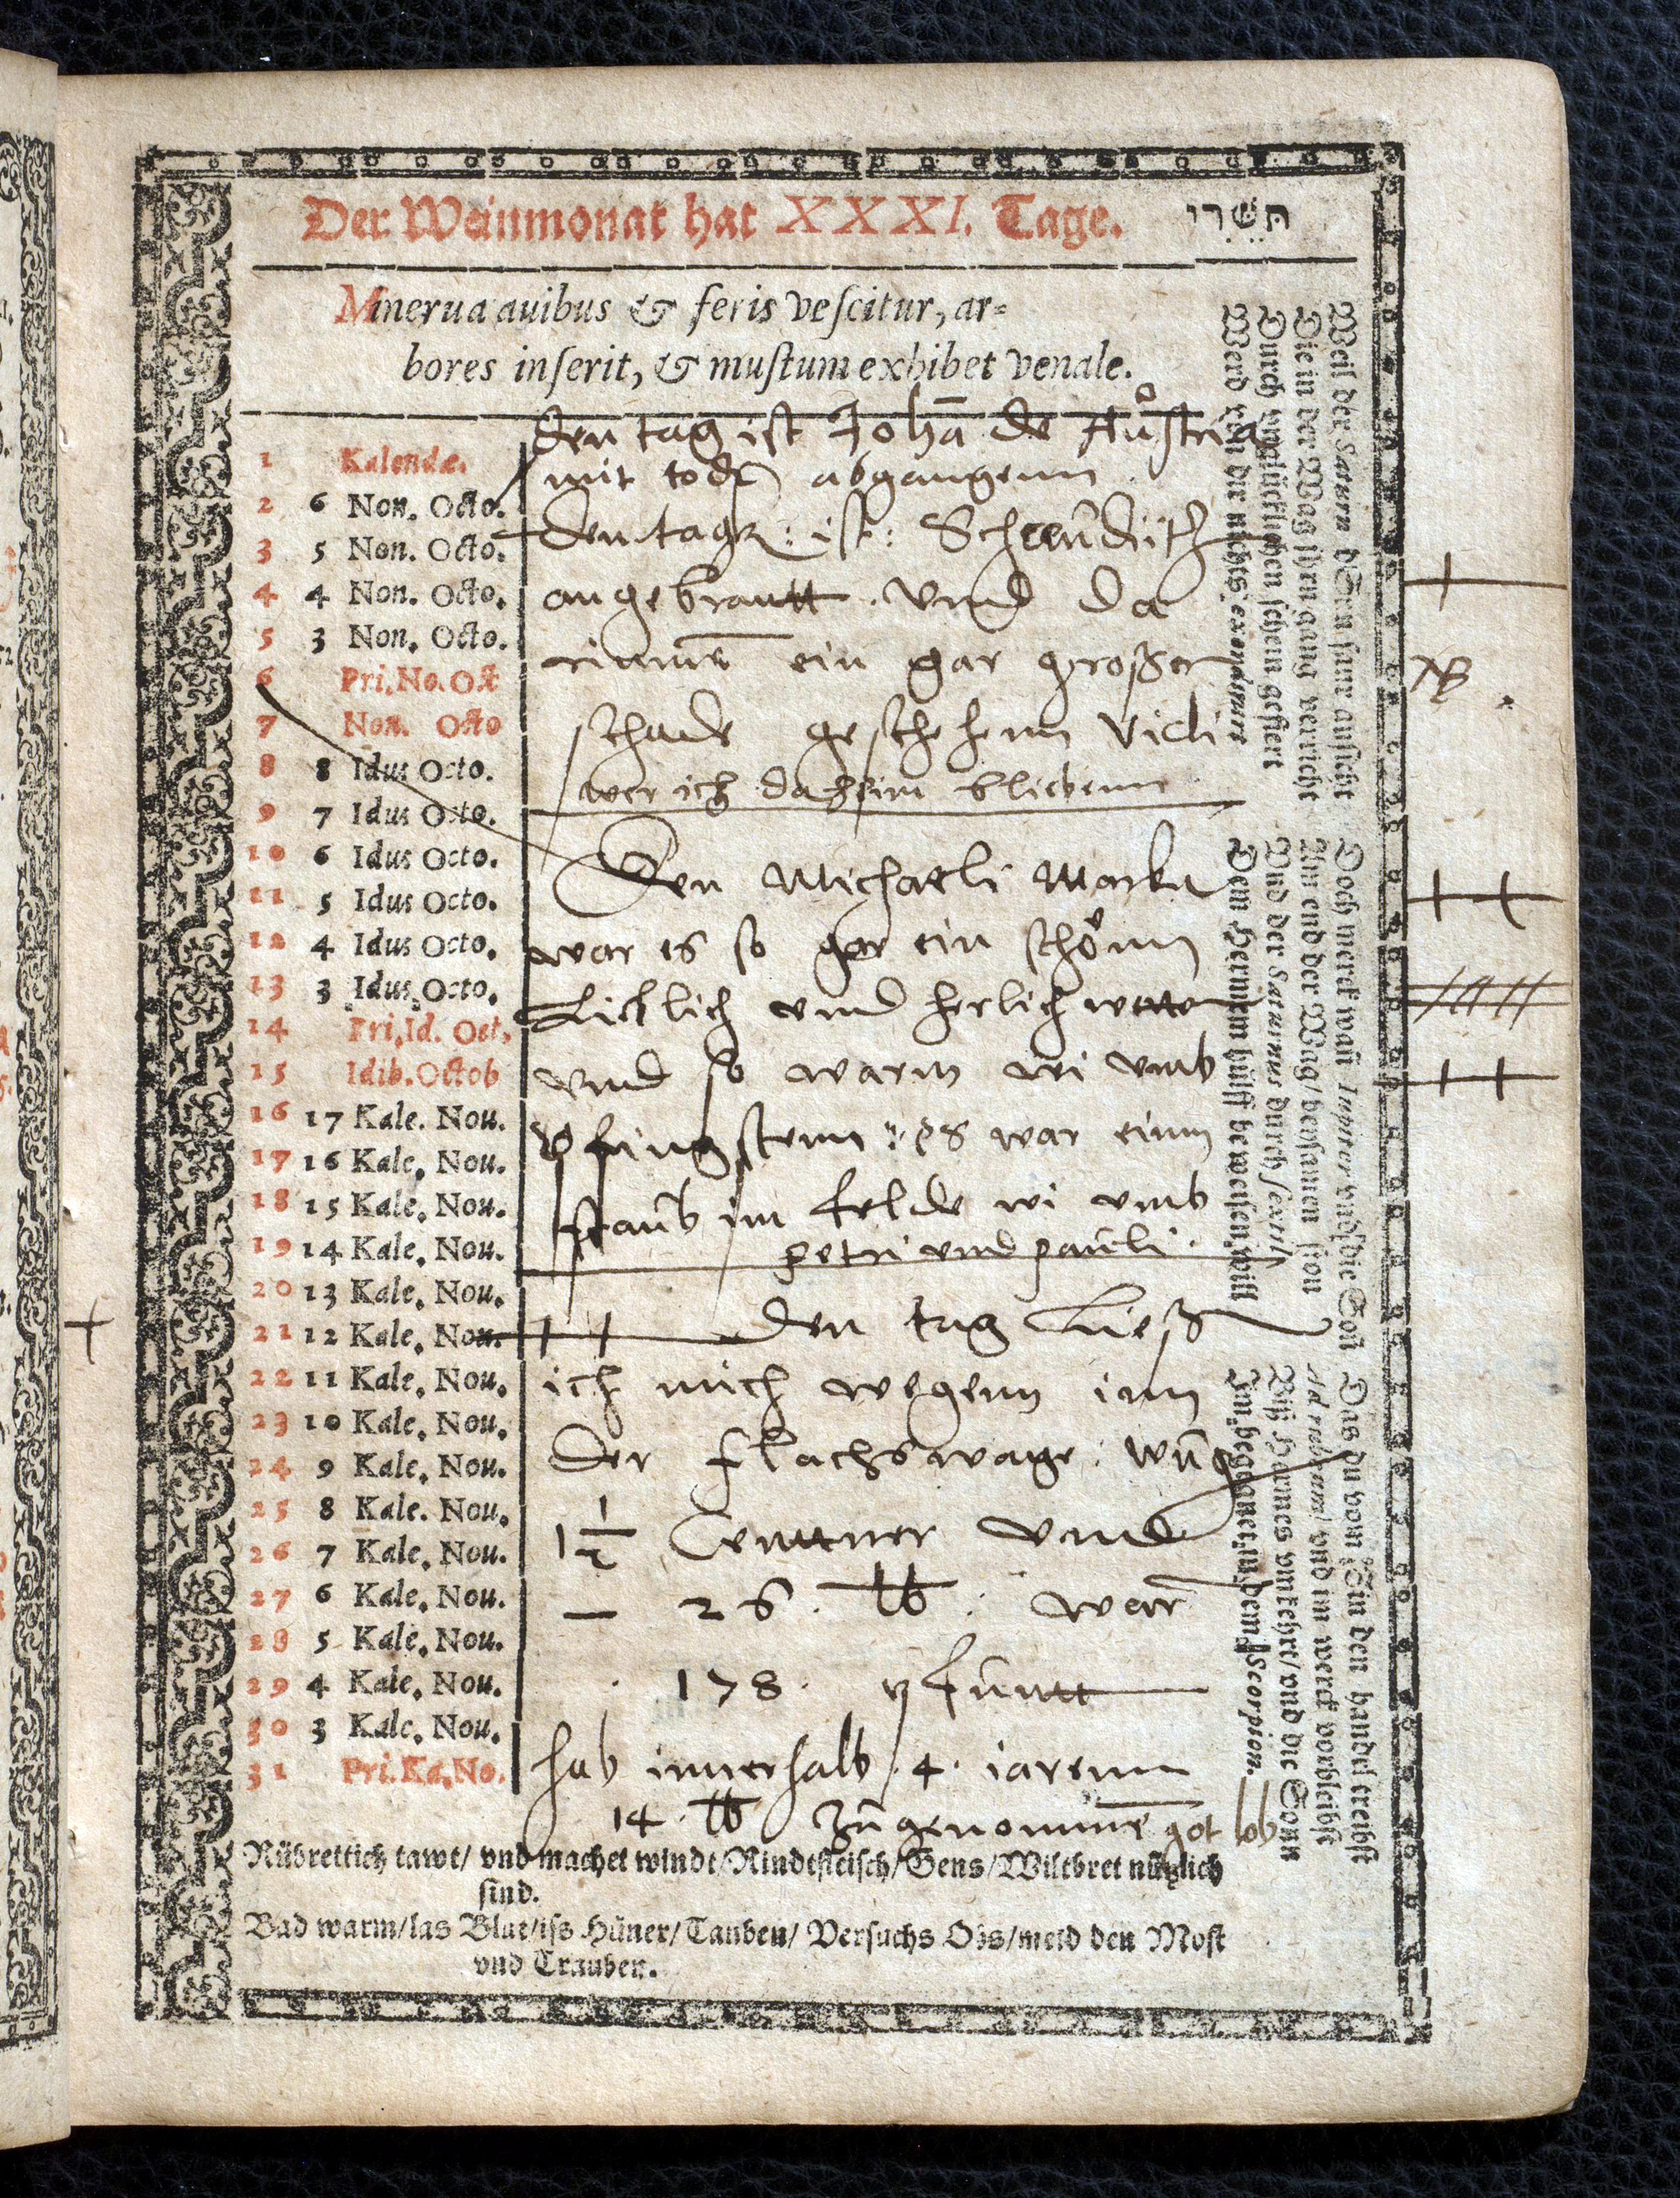 Der Weinmonat hat XXXI. Tage. תִּשְׁרֵי
Minerua auibus & feris veſcitur, ar=
bores inſerit, & muſtum exhibet venale.
1 Kalendæ.
2 6 Non. Octo.
3 5 Non. Octo.
4 4 Non. Octo.
5 3 Non. Octo.
6 Pri. No. Oct
7 Non. Octo
8 8 Idus Octo.
9 7 Idus Octo.
10 6 Idus Octo.
11 5 Idus Octo.
12 4 Idus Octo.
13 3 Idus Octo.
14 Pri. Id. Oct.
15 Idib. Octob
16 17 Kale. Nou.
17 16 Kale. Nou.
18 15 Kale. Nou.
19 14 Kale. Nou.
20 13 Kale. Nou.
21 12 Kale. Nou.
22 11 Kale. Nou.
23 10 Kale. Nou.
24 9 Kale. Nou.
25 8 Kale. Nou.
26 7 Kale. Nou.
27 6 Kale. Nou.
28 5 Kale. Nou.
29 4 Kale. Nou.
30 3 Kale. Nou.
31 Pri. Ka. No.
den tag ist Johã de Aůstria
mit todt abgangenn
den tagk: ist:
angebrantt. vnnd da
rinnnē ein gar großer
schade geschehenn vidi
wer ich daheim bliebenn
Den Michaeli Marckt
war es so gar ein schönn
Lieblich vnnd herlich wetter
vnnd so warm wi vmb
pfingstenn: es war einn
staub im felde wi vmb
petri vnnd pauli.
den tag Ließ
ich mich wegenn inn
der flachswage: wug
1 1/2 Centtner vnnd
— 26. lb: war
178. pfuntt
hab innerhalb .4. iarenn
14. lb zugenommē got lob
NB.
Weil der Saturn d'Sun ſaur anſicht
Die in der Wag jhrn gang verricht
Durch vnglücklichen ſchein geſtert
Doch merck wañ Iupiter vnd die Soñ
Am end der Wag/ beyſamen ſton
Vnd der Saturnus durch ſextil
Dem Herrnem hülff beweiſen will
Das du vom Zin den handel treibſt
Ad rubeum/ vnd im werck vorbleibſt
Biß Hermes vmkehrt/ vnd die Sonn
Im begegnet in dem Scorpion.
Rübrettich tawt/ vnd machet windt/ Rindtfleiſch/ Gens/ Wiltbret nützlich
ſind.
Bad warm/ las Blut/ iſs Hüner/ Tauben/ Verſuchs Obs/ meid den Moſt
vnd Trauben.